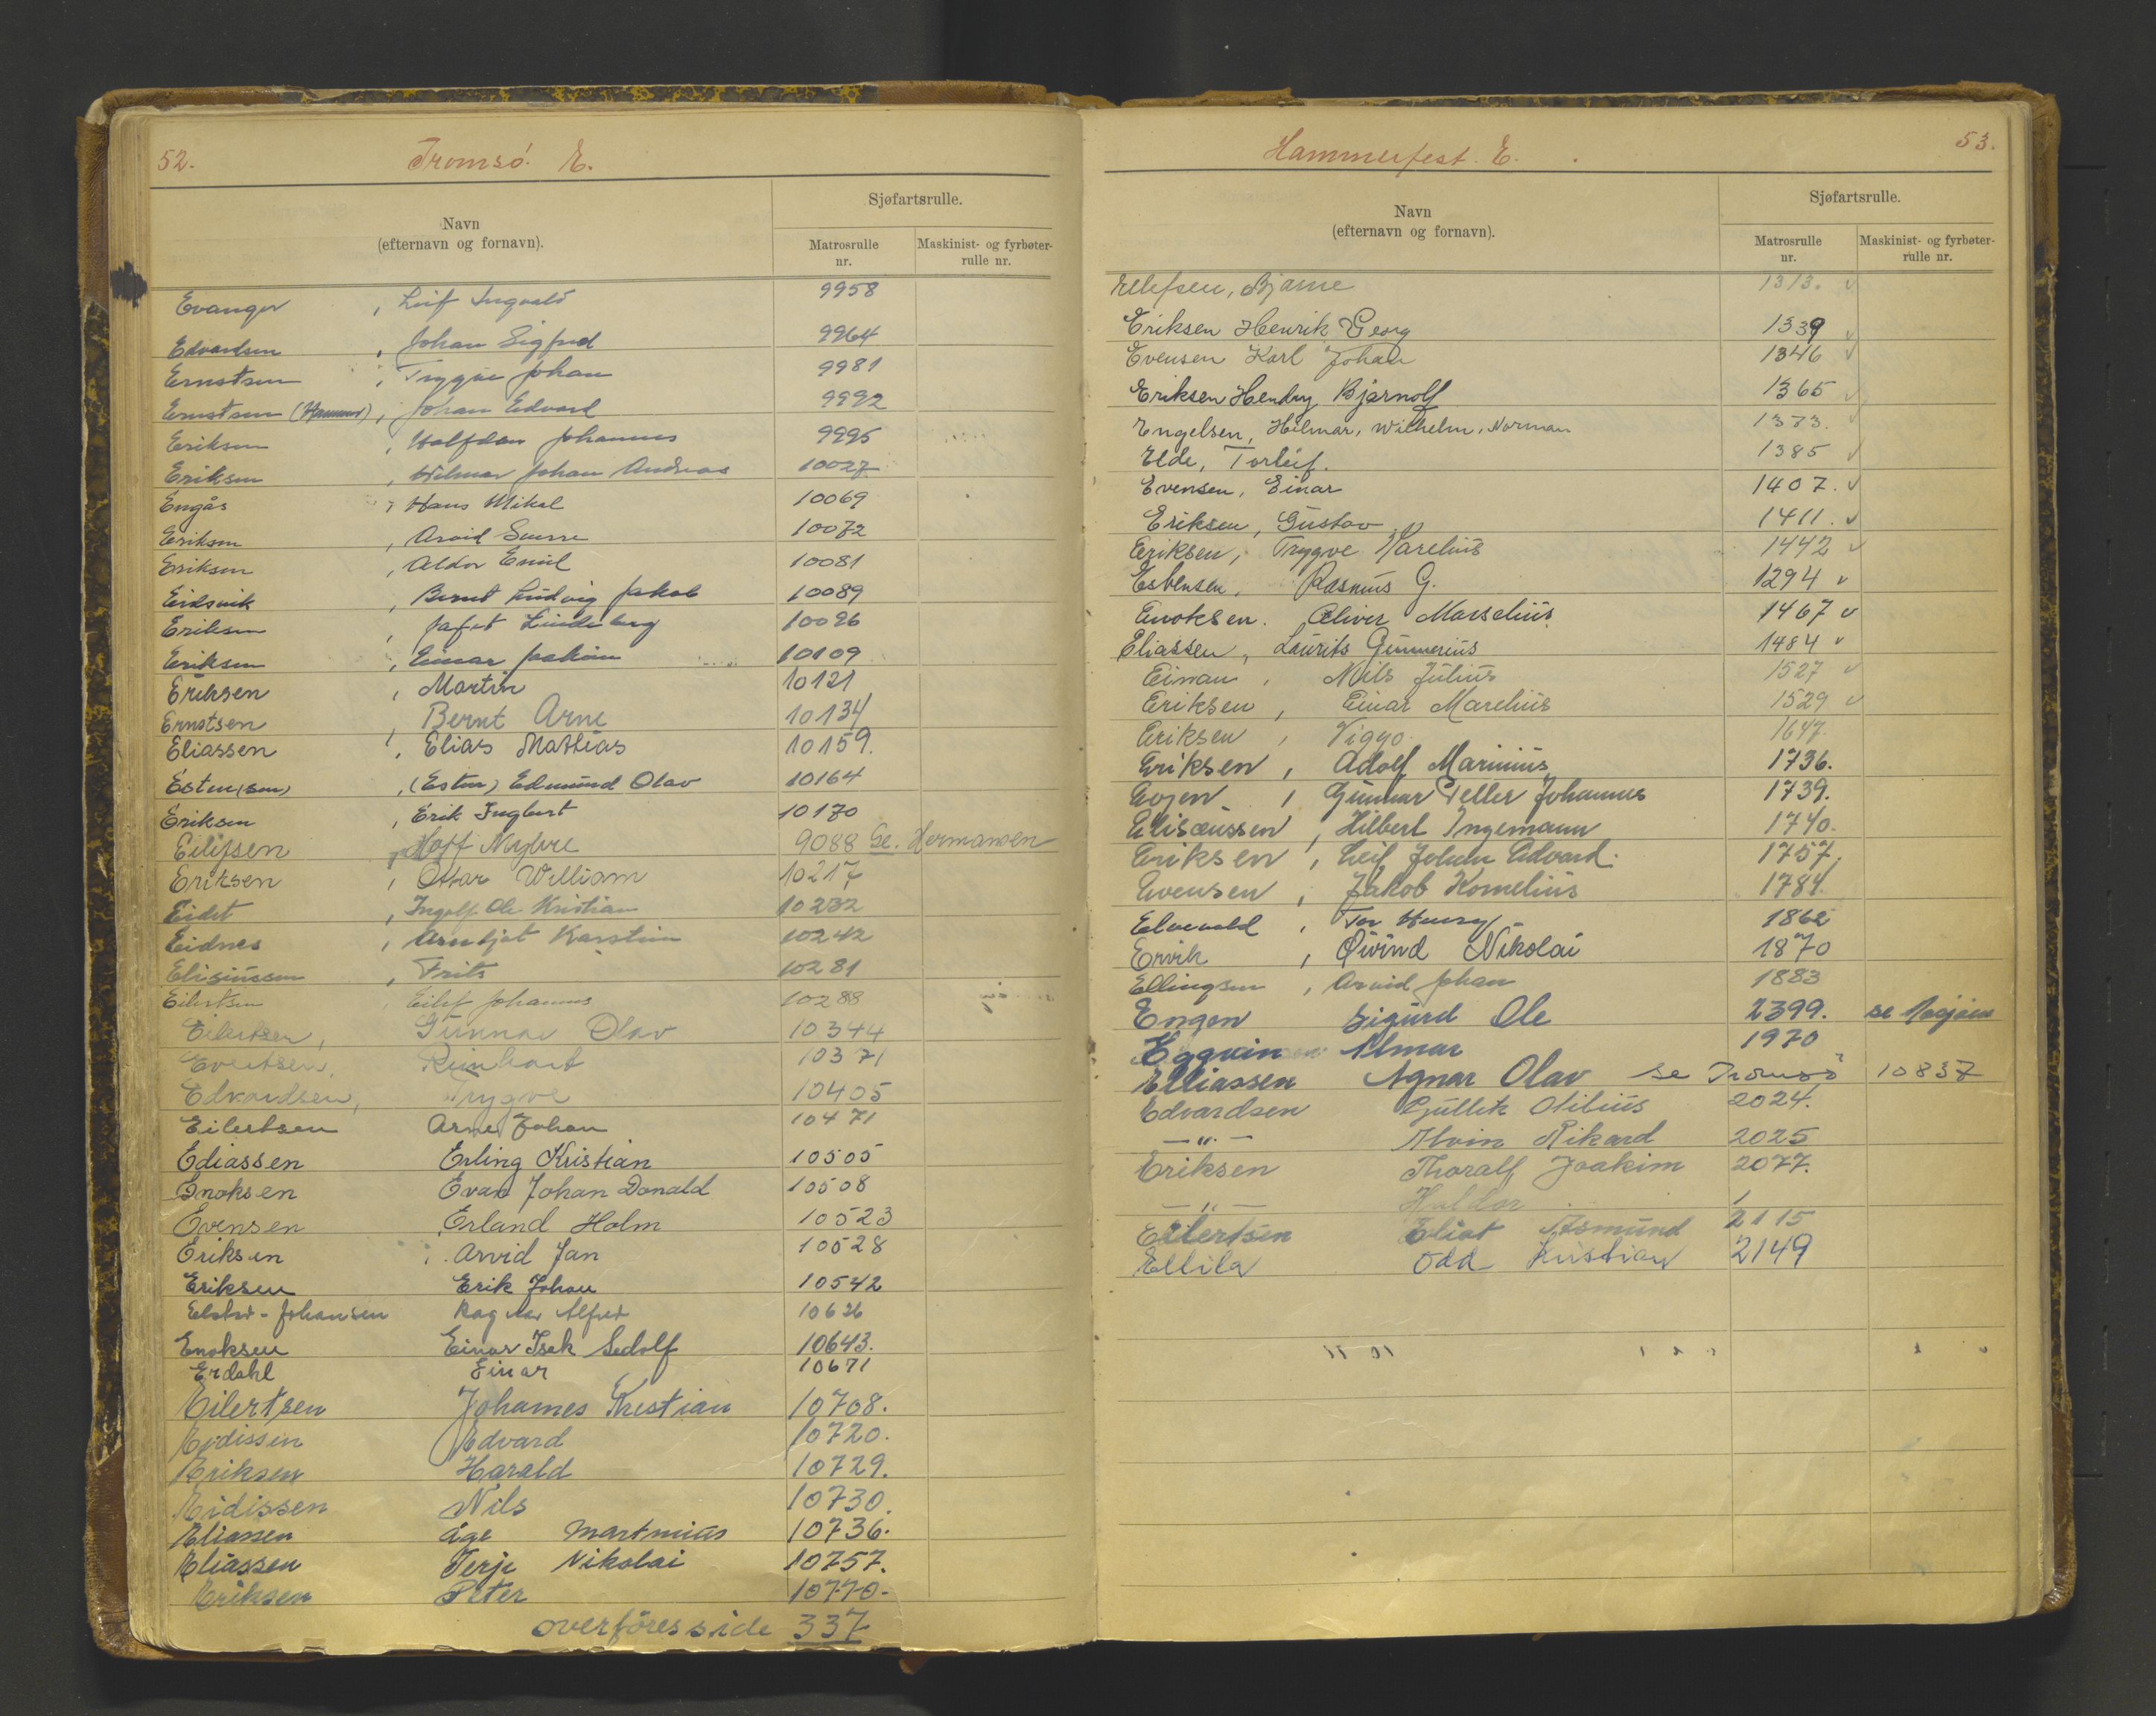 52. Tromsø. E.
Navn
(efternavn og fornavn).
Sjøfartsrulle.
Matrosrulle
nr.
Maskinist- og fyrbøter-
rulle nr.
Evanger, Leif Ingvald 9958
Edvardsen, Johan Sigfred 9964
Ernstsen, Trygve Johan 9981
Ernstsen (Hammer), Johan Edvard 9992
Eriksen, Halfdan Johannes 9995
Eriksen, Hilmar Johan Andreas 10027
Engås, Hans Mikal 10069
Eriksen, Arvid Sverre 10072
Eriksen, Aldor Emil 10081
Eidsvik, Bernt Ludvig Jakob 10089
Eriksen, Jafet Lindeberg 10096
Eriksen, Einar Joakim 10109
Eriksen, Martin 10121
Ernstsen, Bernt Arne 10134
Eliassen, Elias Mathias 10159.
Esten(sen), (Esten) Edmund Olav 10164
Eriksen, Erik Ingbert 10170
Eilifsen, Hoff Nybre 9088 Se. Hermansen
Eriksen, Ottar William 10217
Eidet, Ingolf Ole Kristian 10232
Eidnes, Arnljot Karstein 10242
Eliseussen, Frits 10281
Eilertsen, Eilif Johannes 10288
Eilertsen, Gunnar Olav 10344
Evertsen, Reinhart 10371
Edvardsen, Trygve 10405
Eilertsen Arne Johan 10471
Ediassen Erling Kristian 10505
Enoksen Evan Johan Donald 10508
Evensen Erland Holm 10523
Eriksen Arvid Jan 10528
Eriksen Erik Johan 10542
Johansen Ragnar Alfred 10626
Enoksen Einar Isak Sedolf 10643.
Erdahl Einar 10671
Eilertsen Johannes Kristian 10708.
Eidissen Edvard 10720.
Eriksen Harald 10729.
Eidissen Nils 10730.
Eliassen Åge Martinius 10736.
Eliassen Terje Nikolai 10757.
Eriksen Peter 10770.
overføres side 337
Hammerfest. E. 53.
Navn
(efternavn og fornavn).
Sjøfartsrulle.
Matrosrulle
nr.
Maskinist- og fyrbøter-
rulle nr.
Ellefsen, Bjarne 1313. v
Eriksen Henrik Georg 1339 v
Evensen Karl Johan 1346 v
Eriksen Hendry Bjarnolf 1365 v
Engelsen, Hilmar, Wilhelm, Norman 1373. v
Elde, Torleif. 1385 v
Evensen, Einar 1407. v
Eriksen, Gustav 1411. v
Eriksen, Trygve Karelius 1442 v
Esbensen, Rasmus G. 1294 v
Enoksen. Oliver Marselius 1467 v
Eliassen, Laurits Gunnerius 1484 v
Einan, Nils Julius 1527 v
Eriksen, Einar Marelius 1529 v
Eriksen, Viggo 1647.
Eriksen, Adolf Marinius 1736.
Evjen, Gunnar Peller Johannes 1739.
Elisæussen, Hilbert Ingemann 1740.
Eriksen, Leif Johan Edvard. 1757.
Evensen, Jakob Kornelius 1784.
Elvevold, Tor Henry 1862
Ervik, Øivind Nikolai 1870
Ellingsen, Arvid Johan 1883
Engen Sigurd Ole 2399. se Mosjøen
Eggvin Almar 1970
Eliassen Agnar Olav se Tromsø 10837
Edvardsen Gullik Otilius 2024.
— " — Alvin Rikard 2025
Eriksen Thoralf Joakim 2077.
— " — Haldor
Eilertsen Eliot Asmund 2115
Ellila Odd Kristian 2149